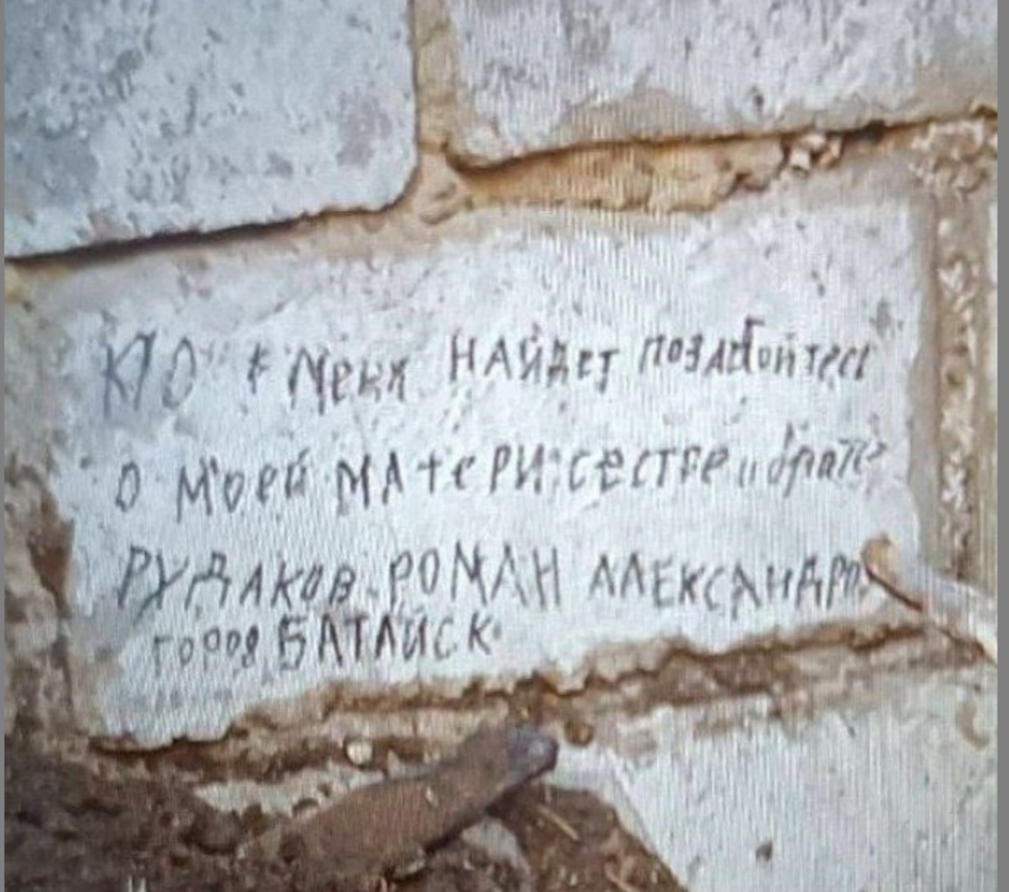 КТО меня НАЙДЕТ позаботтесь
о моей МАтеРИ сестре и брате
РУДАКОВ РОМАН АЛЕКСАНДРО
город БАТАЙСК